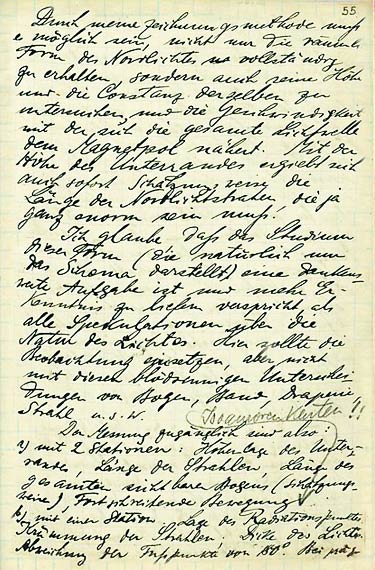 55
Durch meine Zeichnungsmethode muß
e möglich sein, nicht nur die räuml.
Form des Nordlichtes so vollständig
zu erhalten, sondern auch seine Höhe
und die Constanz derselben zu
untersuchen, und die Geschwindigkeit
mit der sich die gesamte Lichtquelle
dem Magnetpol nähert. Mit der
Höhe des Unterrandes ergiebt sich
auch sofort Schätzungsweise die
Länge der Nordlichtstrahlen, die ja
ganz enorm sein muß.
Ich glaube daß das Studium
dieser Form (die natürlich nur
das Schema darstellt) eine dankens-
werte Aufgabe ist und mehr Er-
kenntnis zu liefern verspricht als
alle Spekulationen über die
Natur des Lichtes. Hier sollte die
Beobachtung einsetzen, aber nicht
mit diesen blödsinnigen Unterschei
dungen von Bogen, Band, Draperie,
Strahl u.s.w. Isoauroren Karten!!
Der Messung zugänglich sind also:
a) mit 2 Stationen: Höhenlage des Unter-
randes, Länge der Strahlen, Länge des
gesamten sichtbaren Bogens (schätzungs-
weise), Fortschreitende Bewegung
b) mit einer Station Lage des Radiationspunktes
Krümmung der Strahlen, Dicke des Lichtes
Abweichung der Fußpunkte von 180°. Bei